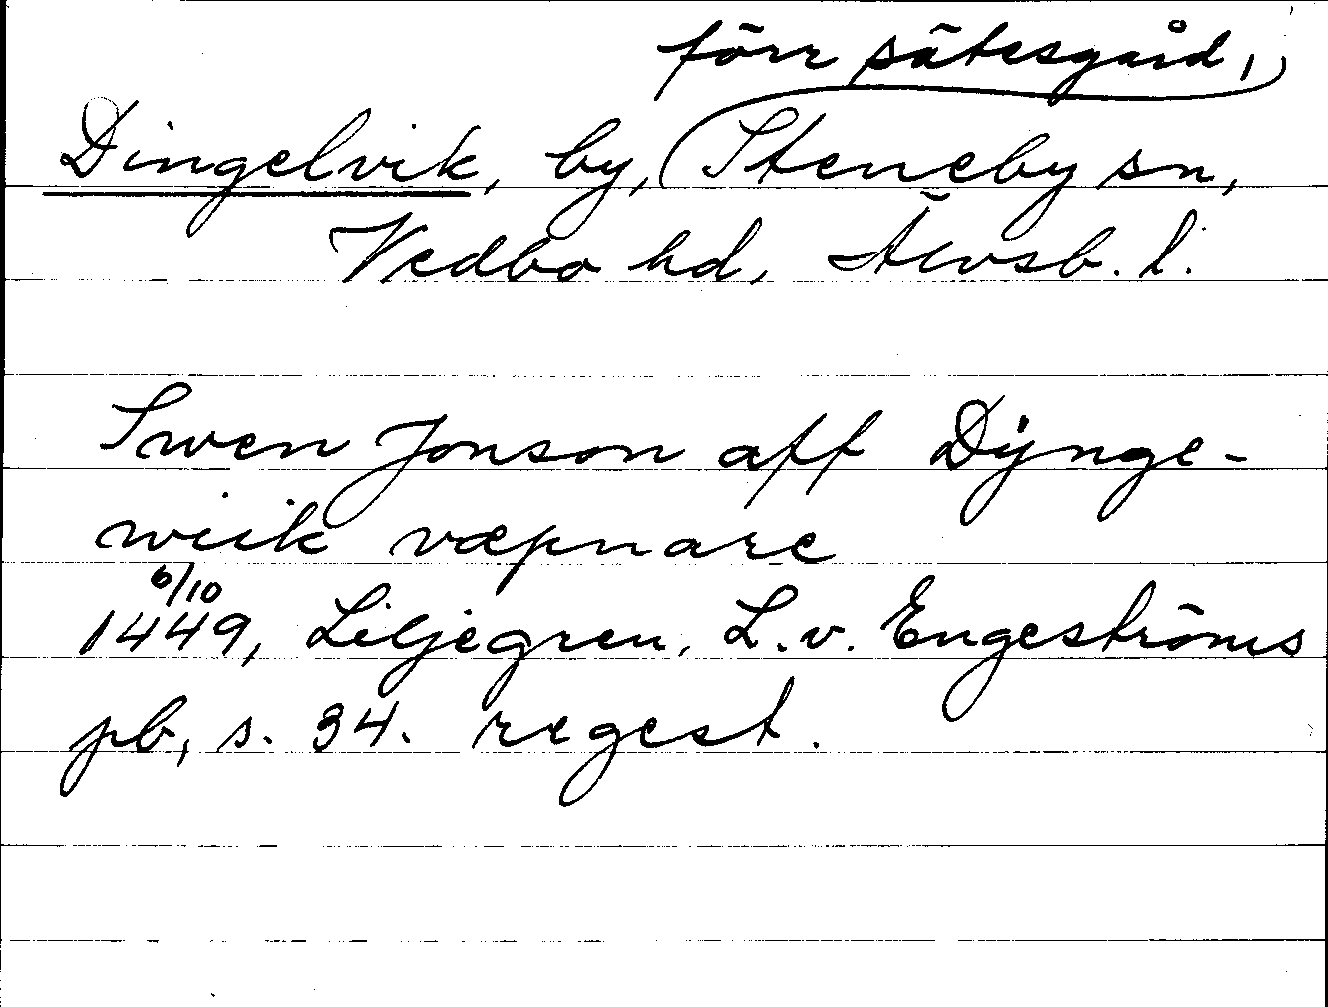 förr sätesgård,
Dingelvik, by, Steneby sn,
Vedbo hd, Älvsb. l.
Swen Jonson aff Dÿnge-
wiik væpnare
6/10
1449, Liljegren, L. v. Engeströms
pb, s. 34. regest.